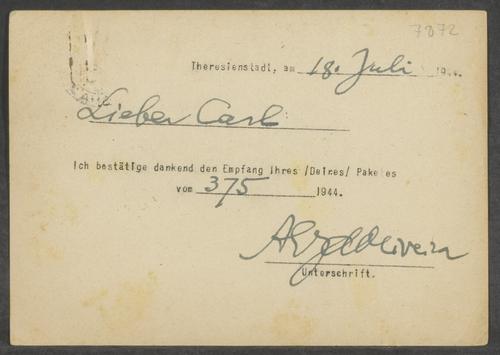 7872
Theresienstadt, am 18. Juli 194 .
Lieber Carl
Ich bestätige dankend den Empfang Ihres /Deines/ Paketes
vom 375 1944.
Unterschrift.